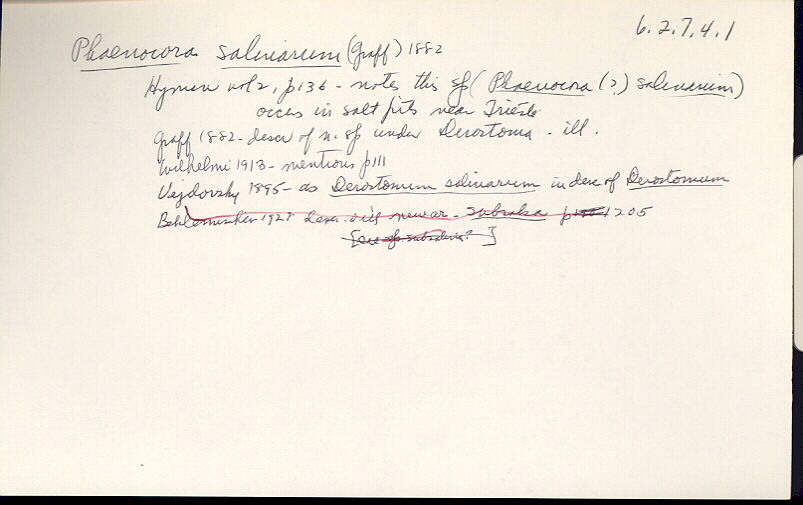 6.2.7.4.1
Phaenocora salinarum (Graff) 1882
Hyman vol 2, p136 - notes this sp (Phaenocora (?) salinarium)
occurs in salt pits near Trieste
Graff 1882 - descr of n. sp under Derostoma - ill.
Wilhelmi 1913 - mentions p111
Vejdovsky 1895 - as Derostomum salinarum in desc of Derostomum
Beklemischev 1927 descr. ill new var. subsalsa p 1205
[see sp subsalsa? ]